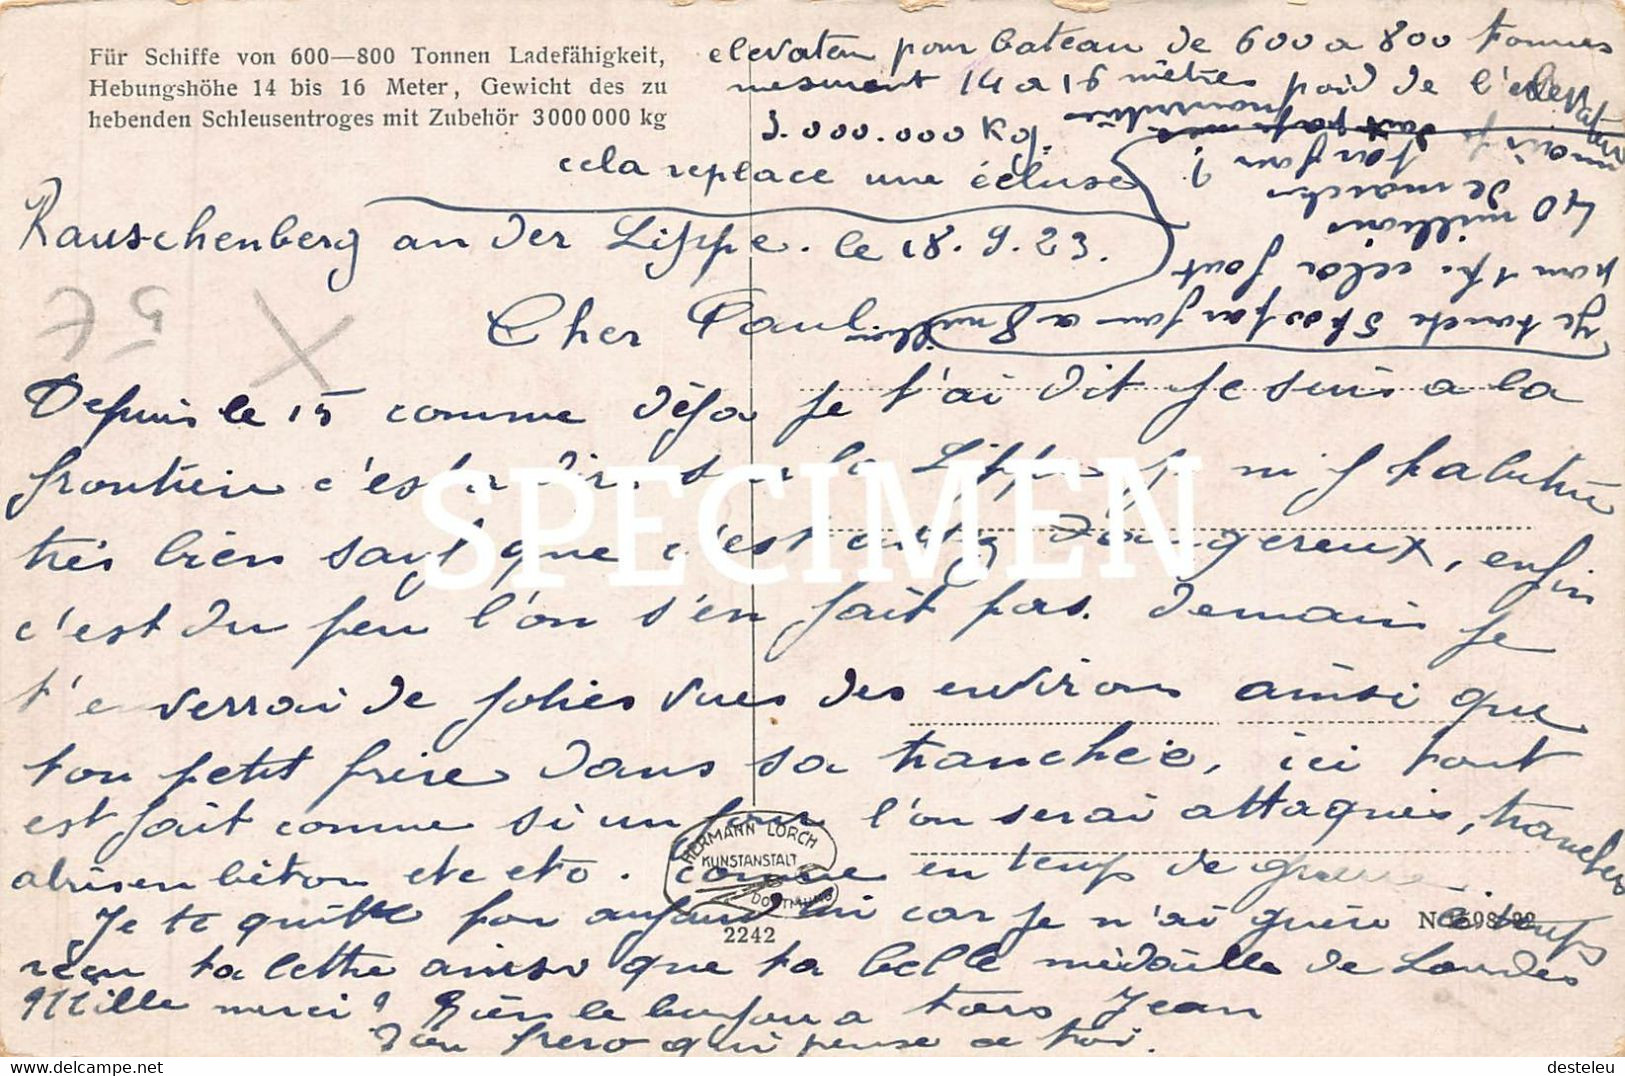 Für Schiffe von 600—800 Tonnen Ladefähigkeit,
Hebungshöhe 14 bis 16 Meter, Gewicht des zu
hebenden Schleusentroges mit Zubehör 3 000 000 kg
elevateur pour bateau de 600 a 800 tonnes
mesurant 14 a 16 mètres poid de l'elevateur
3.000.000 Kg.
cela replace une écluse
Rauschenberg an der Lippe. le 18.9.23.
Je touche 5f00 par jour a 8 millions
pour 1f. cela fait
40 millions
de marks
par jour !
mais je suis pas nourriture
Cher Paul
Depuis le 15 comme déja je t'ai dit je suis a la
frontière c'est a dire sur la Lippe je m'y habitue
très bien sauf que c'est assez dangereux, enfin
c'est du peu l'on s'en fait pas. demain je
t'enverrai de jolies vues des environs ainsi que
ton petit frère dans sa tranchée, ici tout
est fait comme si un jour l'on serai attaqués, tranchées
abris en béton etc etc. comme en temps de guerre.
Je te quitte pour aujourd'hui car je n'ai guère le temps
reçu ta lettre ainsi que ta belle médaille de Lourdes
Mille merci ! Bien le bonjour a tous Jean
Ton frero qui pense a toi.
HERMANN LORCH
KUNSTANSTALT
DORTMUND
2242
SPECIMEN
delcampe.net
desteleu